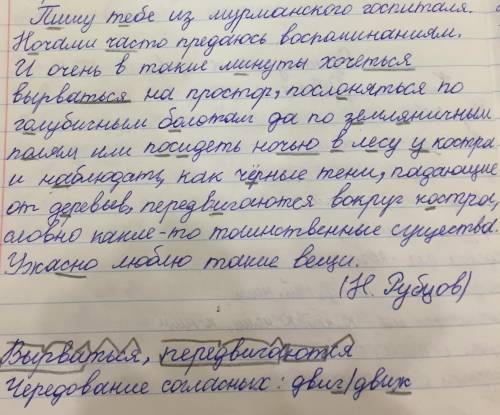 Пишу тебе из мурманского госпиталя.
Ночами часто предаюсь воспоминаниям.
И очень в такие минуты хочеться
вырваться на простор, послоняться по
голубичным болотам да по земляничным
полям или посидеть ночью в лесу у костра
и наблюдать, как чёрные тени, падающие
от деревьев, передвигаются вокруг костра,
словно какие-то таинственные существа.
Ужасно люблю такие вещи.
(Н. Рубцов)
Вырваться, передвигаются
Чередование согласных: двиг/движ